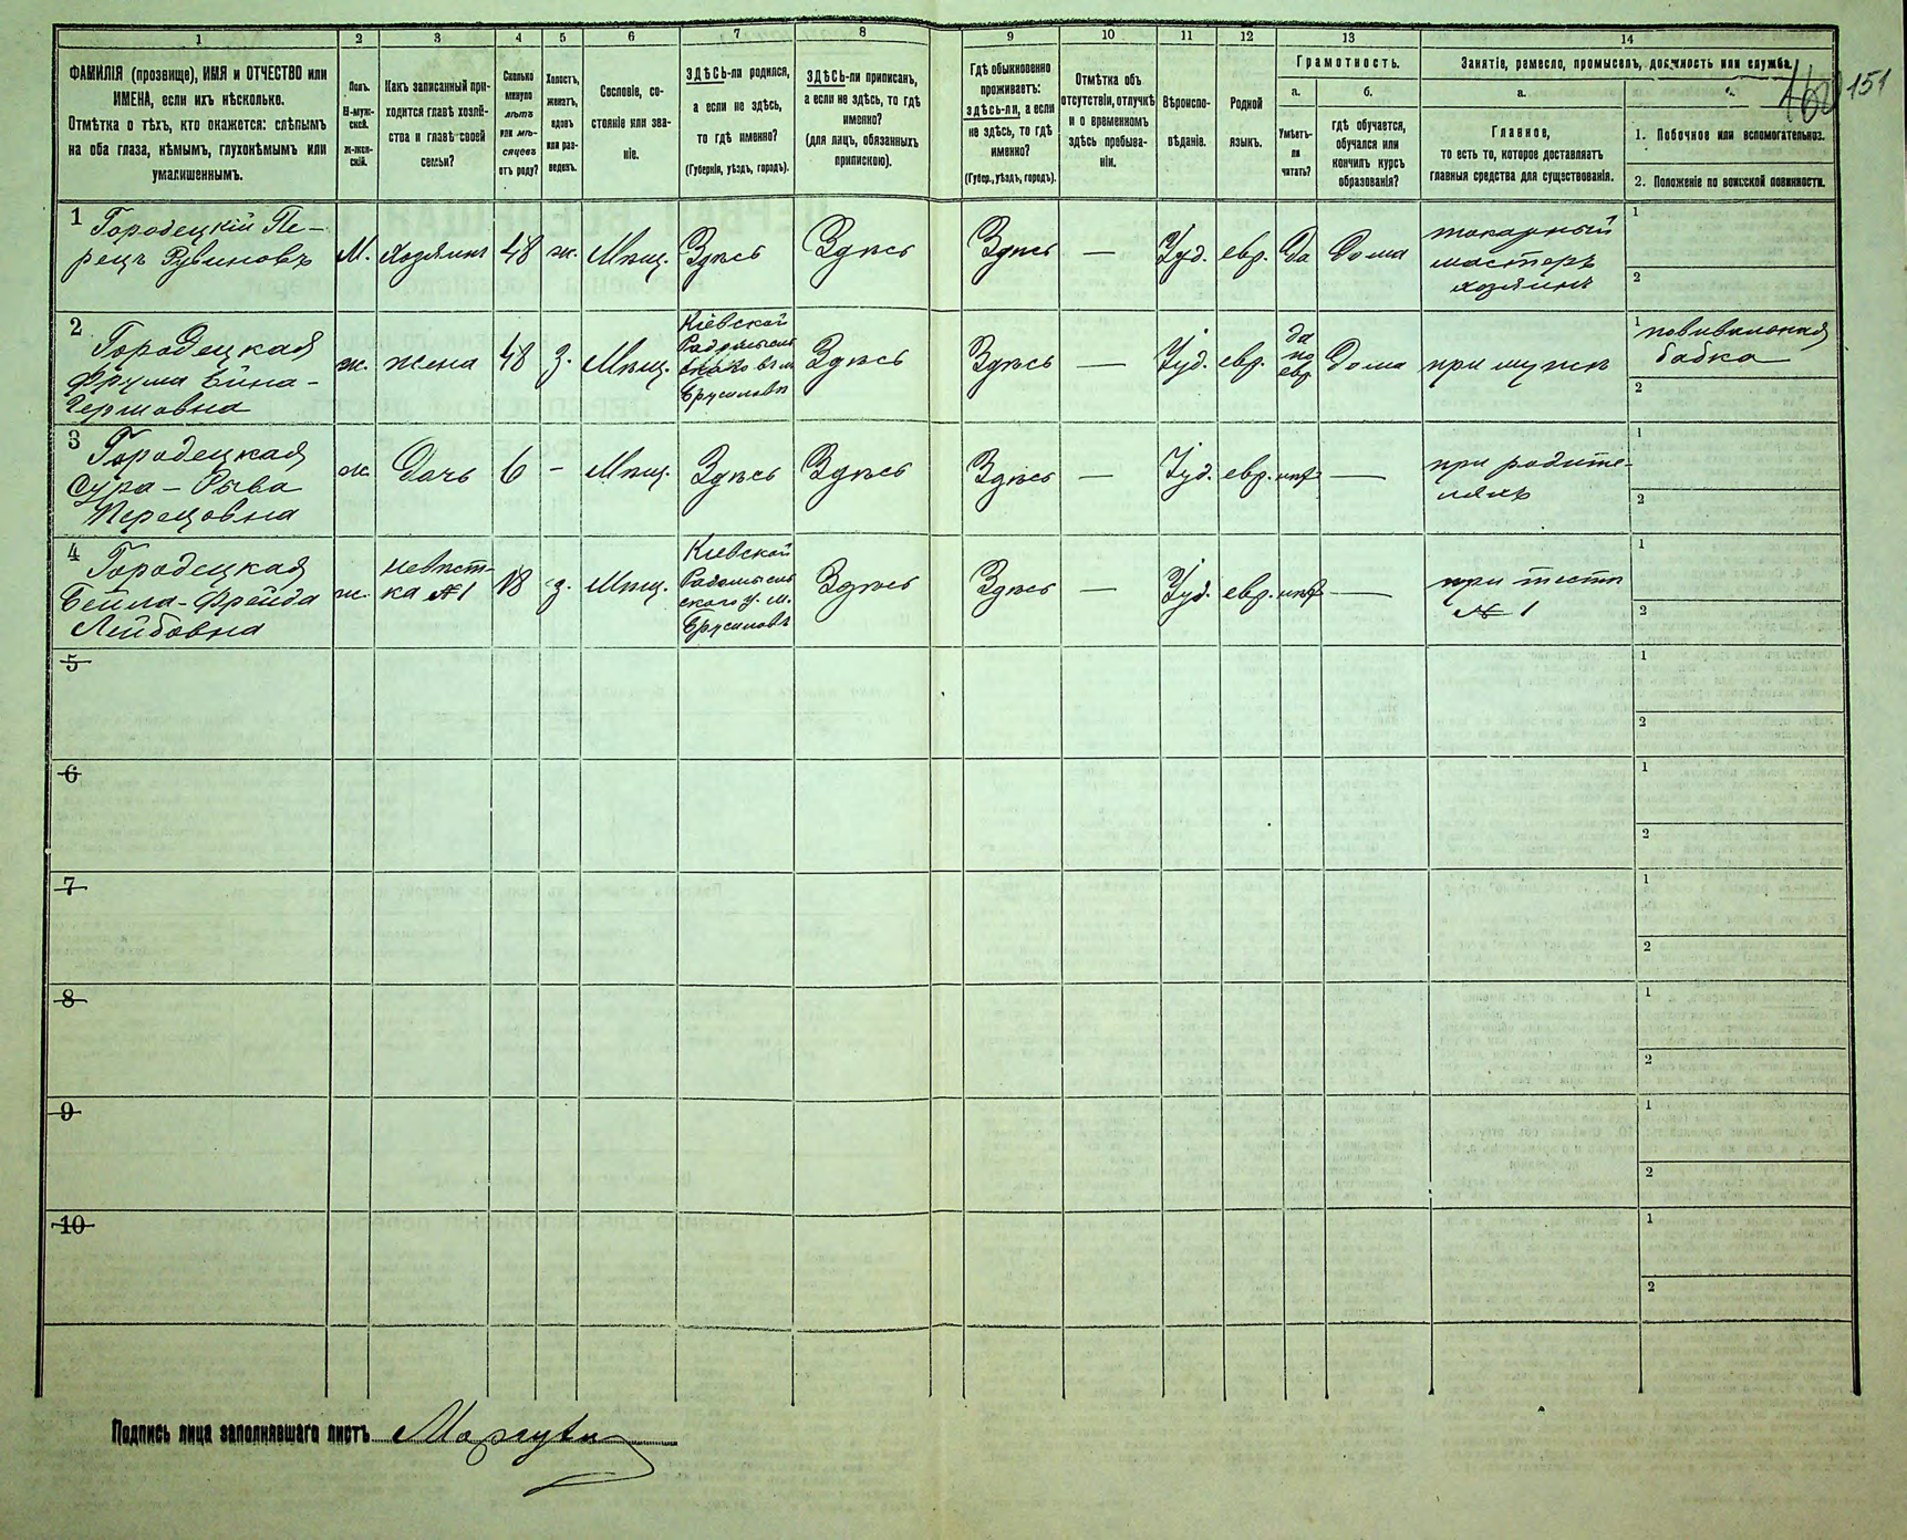 1
2
3
4
5
6
7
8
9
10
11
12
13
14
ФАМИЛІЯ (прозвище), ИМЯ и ОТЧЕСТВО или
ИМЕНА, если ихъ нѣсколько.
Отмѣтка о тѣхъ, кто окажется: слѣпымъ
на оба глаза, нѣмымъ, глухонѣмымъ или
умалишеннымъ.
Полъ.
М-муж-
ской.
Ж-жен-
скій.
Какъ записанный при-
ходится главѣ хозяй-
ства и главѣ своей
семьи?
Сколько
минуло
лѣтъ
или мѣ-
сяцевъ
отъ роду?
Холостъ,
женатъ,
вдовъ
или раз-
веденъ.
Сословіе, со-
стояніе или зва-
ніе.
ЗДѢСЬ-ли родился,
а если не здѣсь,
то гдѣ именно?
(Губернія, уѣздъ, городъ).
ЗДѢСЬ-ли приписанъ,
а если не здѣсь, то гдѣ
именно?
(для лицъ, обязанныхъ
припискою).
Гдѣ обыкновенно
проживаетъ:
здѣсь-ли, а если
не здѣсь, то гдѣ
именно?
(Губер., уѣздъ, городъ).
Отмѣтка объ
отсутствіи, отлучкѣ
и о временномъ
здѣсь пребыва-
ніи.
Вѣроиспо-
вѣданіе.
Родной
языкъ.
Грамотность.
а.
Умѣетъ-
ли
читать?
б.
гдѣ обучается,
обучался или
кончилъ курсъ
образованія?
Занятіе, ремесло, промыселъ, должность или служба.
а.
Главное,
то есть то, которое доставляетъ
главныя средства для существованія.
1. Побочное или вспомогательное.
2. Положеніе по воинской повинности.
151
1 Городецкій Пе-
рецъ Рувиновъ
М.
хозяинъ
48
ж.
Мѣщ.
Здѣсь
Здѣсь
Здѣсь
—
Іуд.
евр.
Да
Дома
токарный
мастеръ
хозяинъ
1
2
2 Городецкая
Фрума Ейна-
Гершовна
ж.
жена
48
з.
Мѣщ.
Кіевской
Радомысль
Брусиловъ
Здѣсь
Здѣсь
—
Іуд.
евр.
да
по
евр.
Дома
при мужѣ
1 повивальная
бабка
2
3 Городецкая
Сура-Рыва
Перецовна
ж.
Дочь
6
-
Мѣщ.
Здѣсь
Здѣсь
Здѣсь
—
Іуд.
евр.
нѣт
—
при родите-
ляхъ
1
2
4 Городецкая
Бейла-Фрейда
Лейбовна
ж.
невѣст-
ка №1
18
з.
Мѣщ.
Кіевской
Радомысль
ского у. м.
Брусиловъ
Здѣсь
Здѣсь
—
Іуд.
евр.
нѣт
—
при тестѣ
№ 1
1
2
5
1
2
6
1
2
7
1
2
8
1
2
9
1
2
10
1
2
Подпись лица заполнявшаго листъ